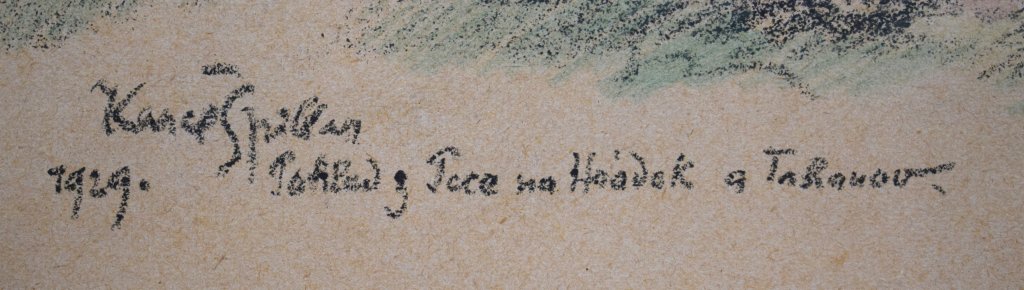 Karel Špillar
1929. Pohled z Pece na Hrádek a Tasanov